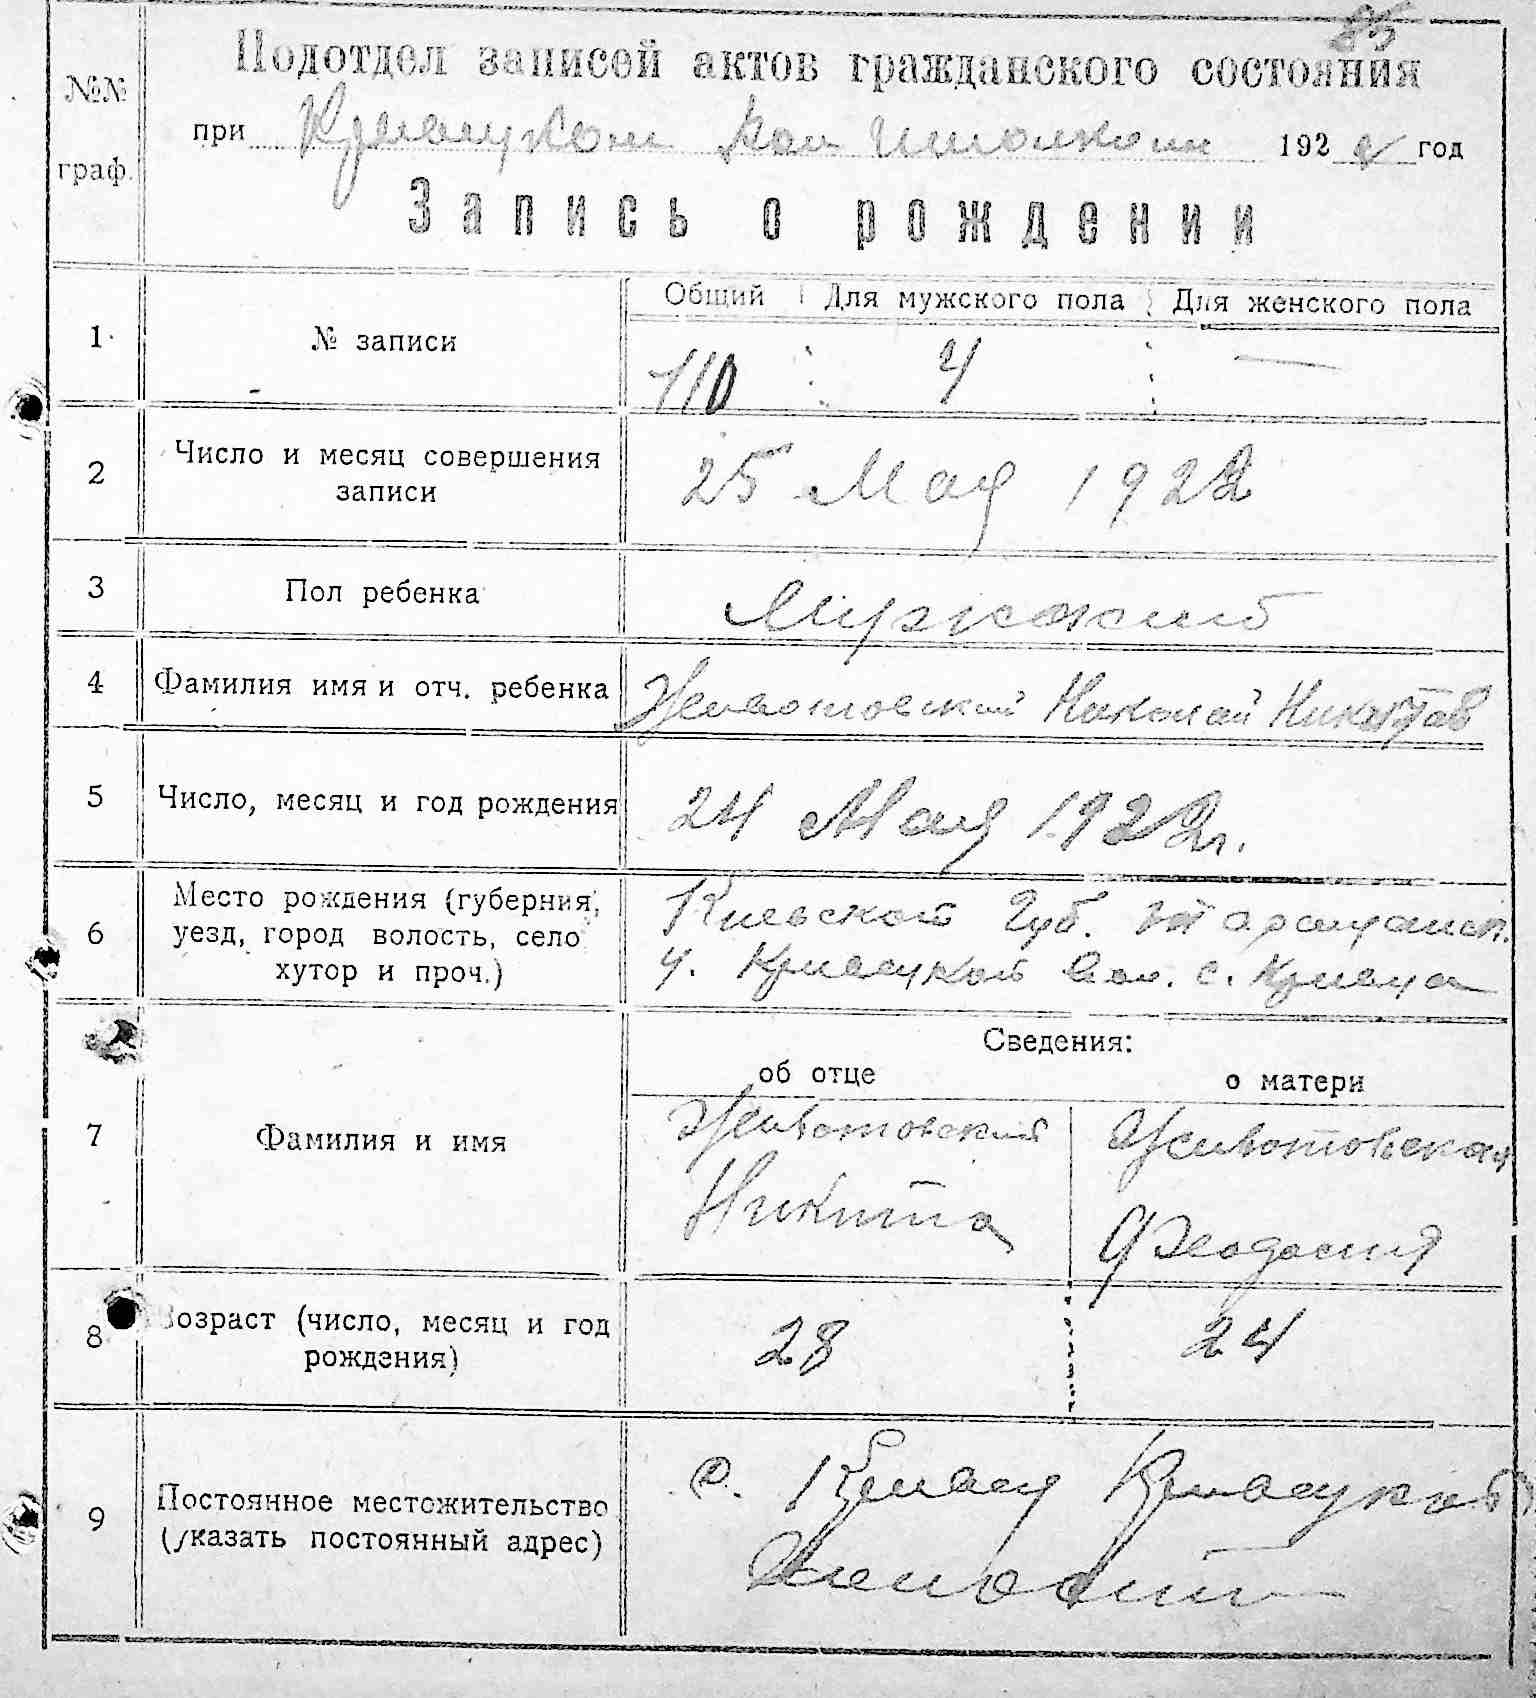 85
№№ граф.
Подотдел записей актов гражданского состояния
при Кривецком 1922 год
Запись о рождении
Общий Для мужского пола Для женского пола
1 № записи 110 4 —
2 Число и месяц совершения 25 Мая 1922
записи
3 Пол ребенка Мужской
4 Фамилия имя и отч. ребенка Животовский Николай Никитов
5 Число, месяц и год рождения 24 Мая 1922 г.
6 Место рождения (губерния, Киевской Губ. Таращанск.
уезд, город волость, село у. Кривецкой вол. с. Кривец
хутор и проч.)
Сведения:
об отце о матери
7 Фамилия и имя Животовский Животовская
Никита Феодосия
8 Возраст (число, месяц и год 28 24
рождения)
9 Постоянное местожительство с. Кривец Кривецкой
(указать постоянный адрес) Волости